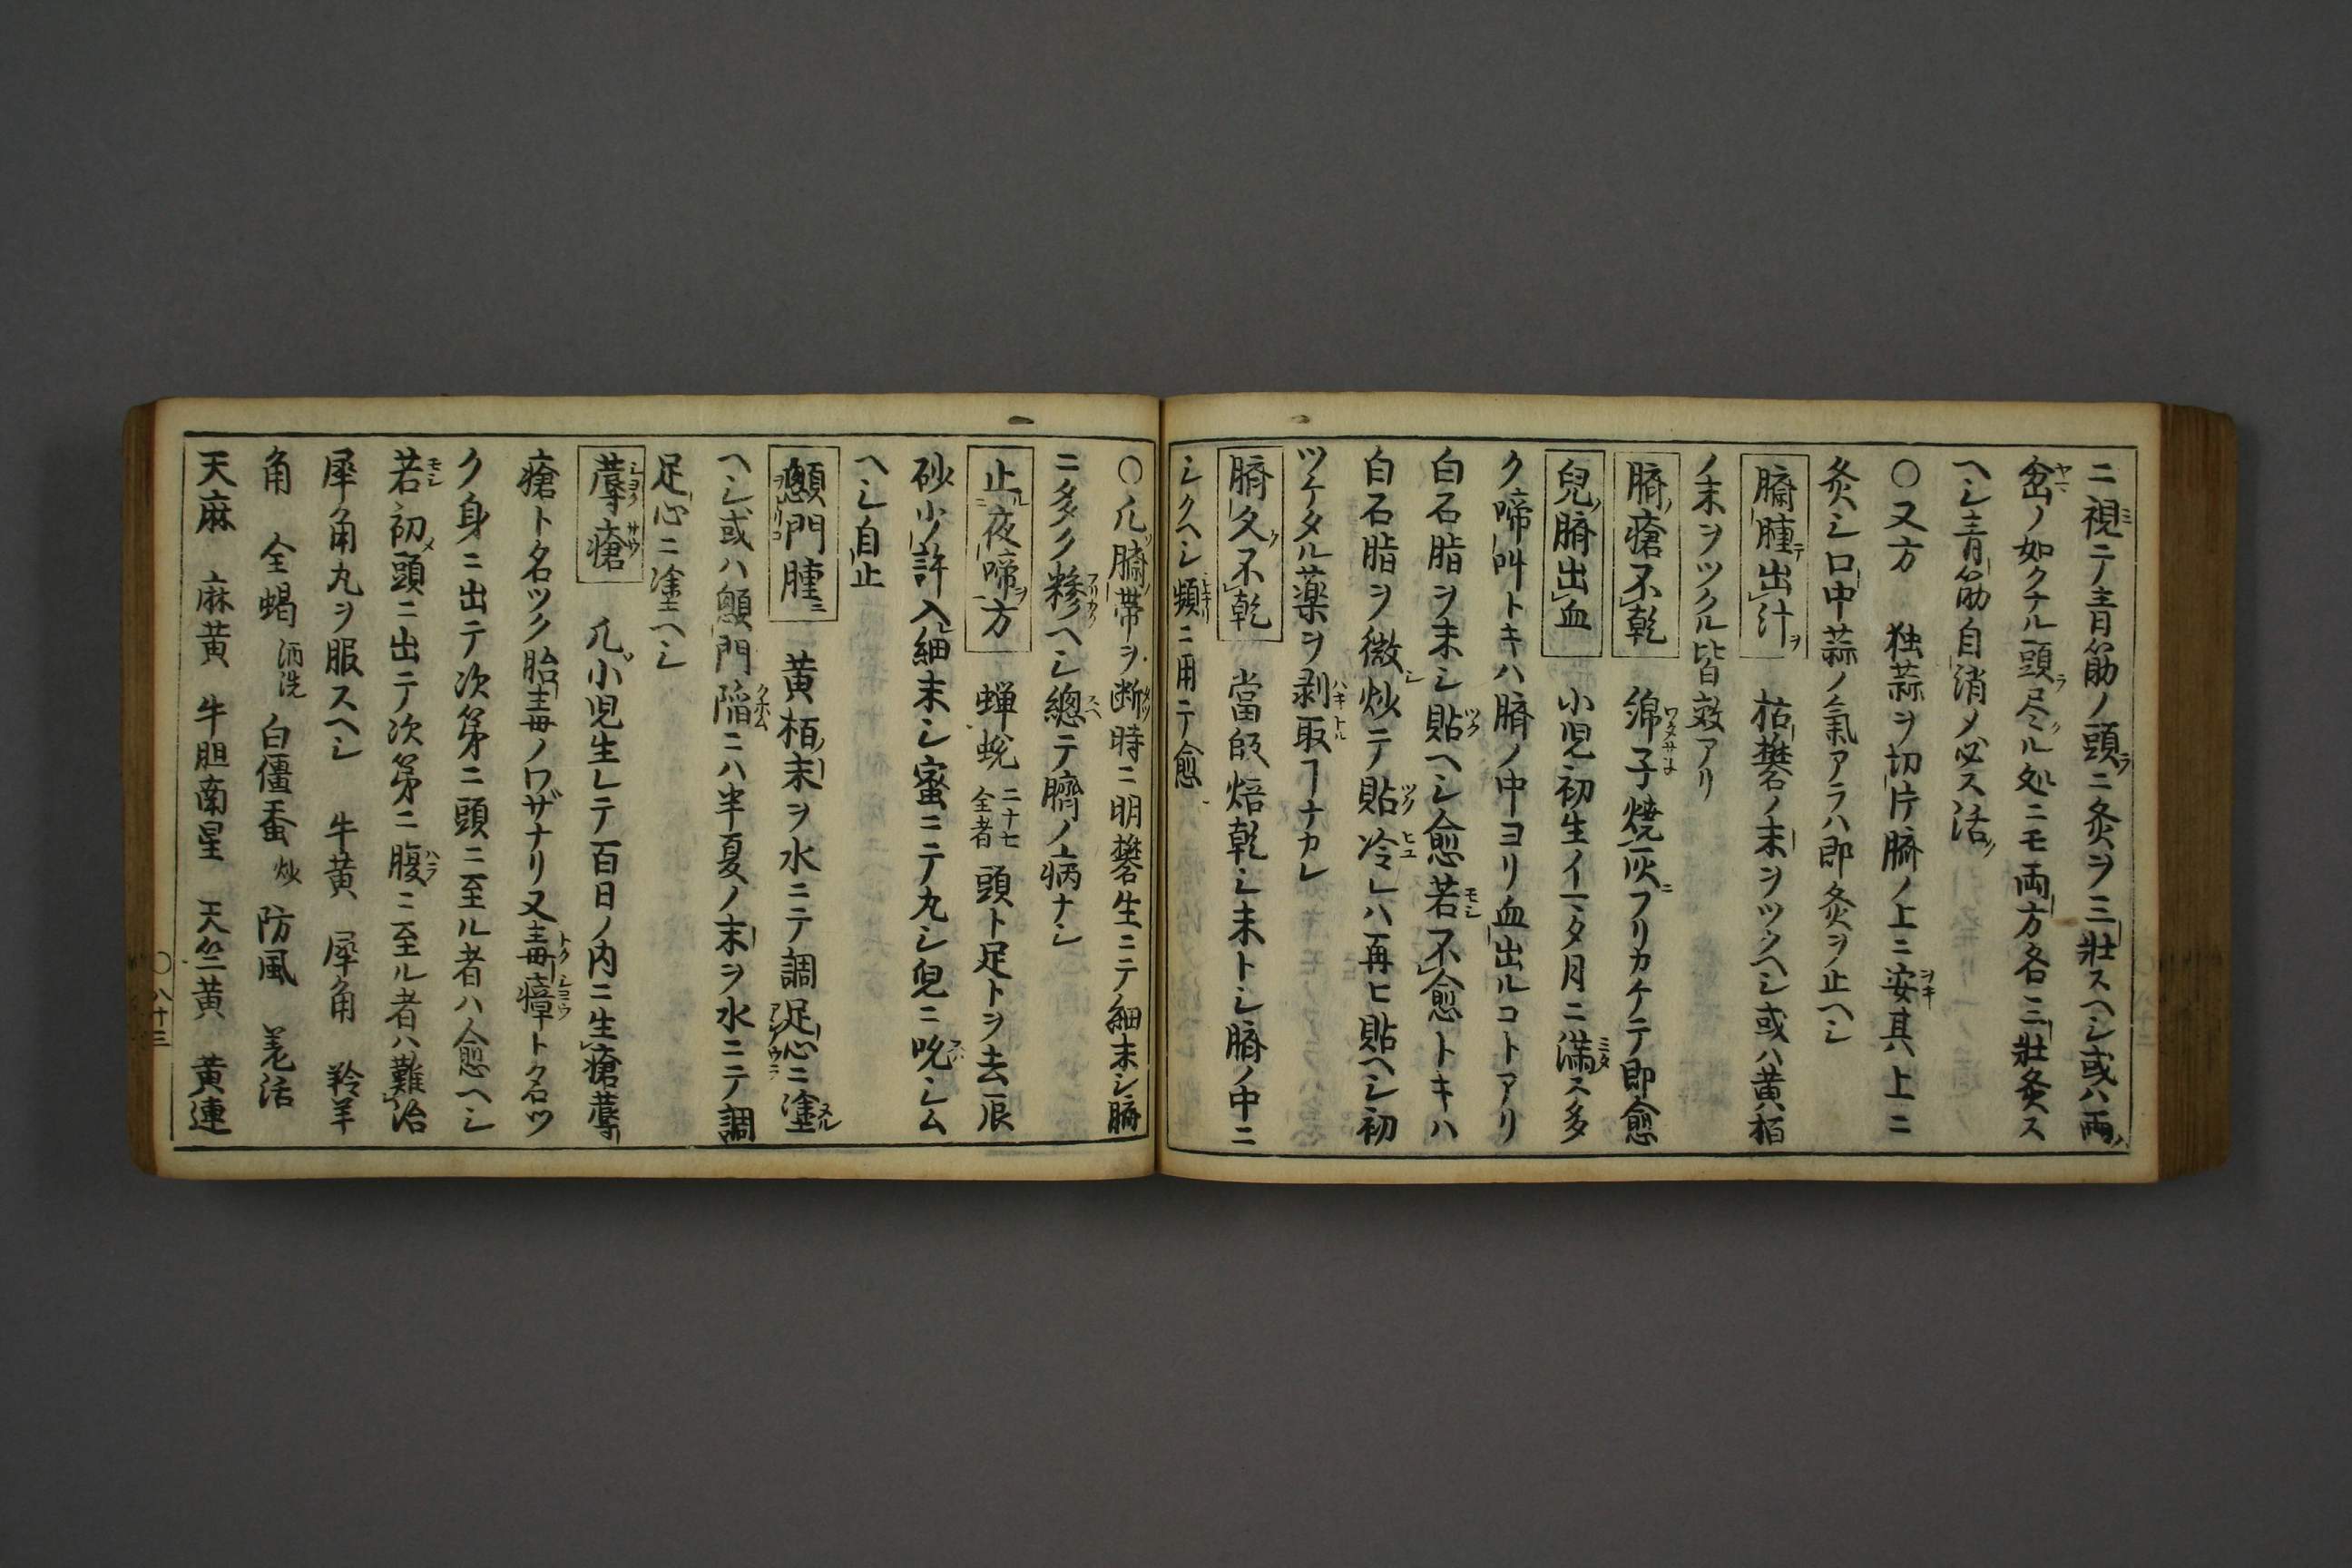 ニ視テ青筋ノ頭ニ灸ヲ三壯スヘシ或ハ両
岔ノ如クナル頭尽ル処ニモ両方各三壯灸ス
ヘシ青筋自消メ必ス活
〇又方　独蒜ヲ切片臍ノ上ニ安其上ニ
灸シ口中蒜ノ氣アラハ即灸ヲ止ヘシ
臍腫出汁　枯礬ノ末ヲツクヘシ或ハ黄栢
ノ末ヲツクル皆效アリ
臍瘡不乾　綿子焼灰フリカケテ即愈
兒臍出血　小児初生イマタ月ニ満ス多
ク啼叫トキハ臍ノ中ヨリ血出ルコトアリ
白石脂ヲ末シ貼ヘシ愈若不愈トキハ
白石脂ヲ微炒テ貼冷レハ再ヒ貼ヘシ初
ツケタル薬ヲ剥取ヿナカレ
臍久不乾　當皈焙乾シ末トシ臍ノ中ニ
シクヘシ頻ニ用テ愈
〇凡臍帯ヲ断時ニ明礬生ニテ細末シ臍
ニ多ク糝ヘシ總テ臍ノ病ナシ
止夜啼方　蝉蛻二十七全者頭ト足トヲ去辰
砂少許入細末シ蜜ニテ丸シ兒ニ吮シム
ヘシ自止
顖門腫　黄栢末ヲ水ニテ調足心ニ塗
ヘシ或ハ顖門陥ニハ半夏ノ末ヲ水ニテ調
足心ニ塗ヘシ
蓐瘡　凡小児生レテ百日ノ内ニ生瘡蓐
瘡ト名ツク胎毒ノワザナリ又毒瘴ト名ツ
ク身ニ出テ次第ニ頭ニ至ル者ハ愈ヘシ
若初頭ニ出テ次第ニ腹ニ至ル者ハ難治
犀角丸ヲ服スヘシ　牛黄　犀角　羚羊
角　全蝎洒洗　白僵蚕炒　防風　羌活
天麻　麻黄　牛胆南星　天竺黄　黄連
〇八十三